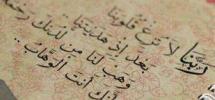 ربنا لا تزغ قلوبنا
بعد إذ هديتنا
وهب لنا من لدنك رحمة
إنك أنت الوهاب..